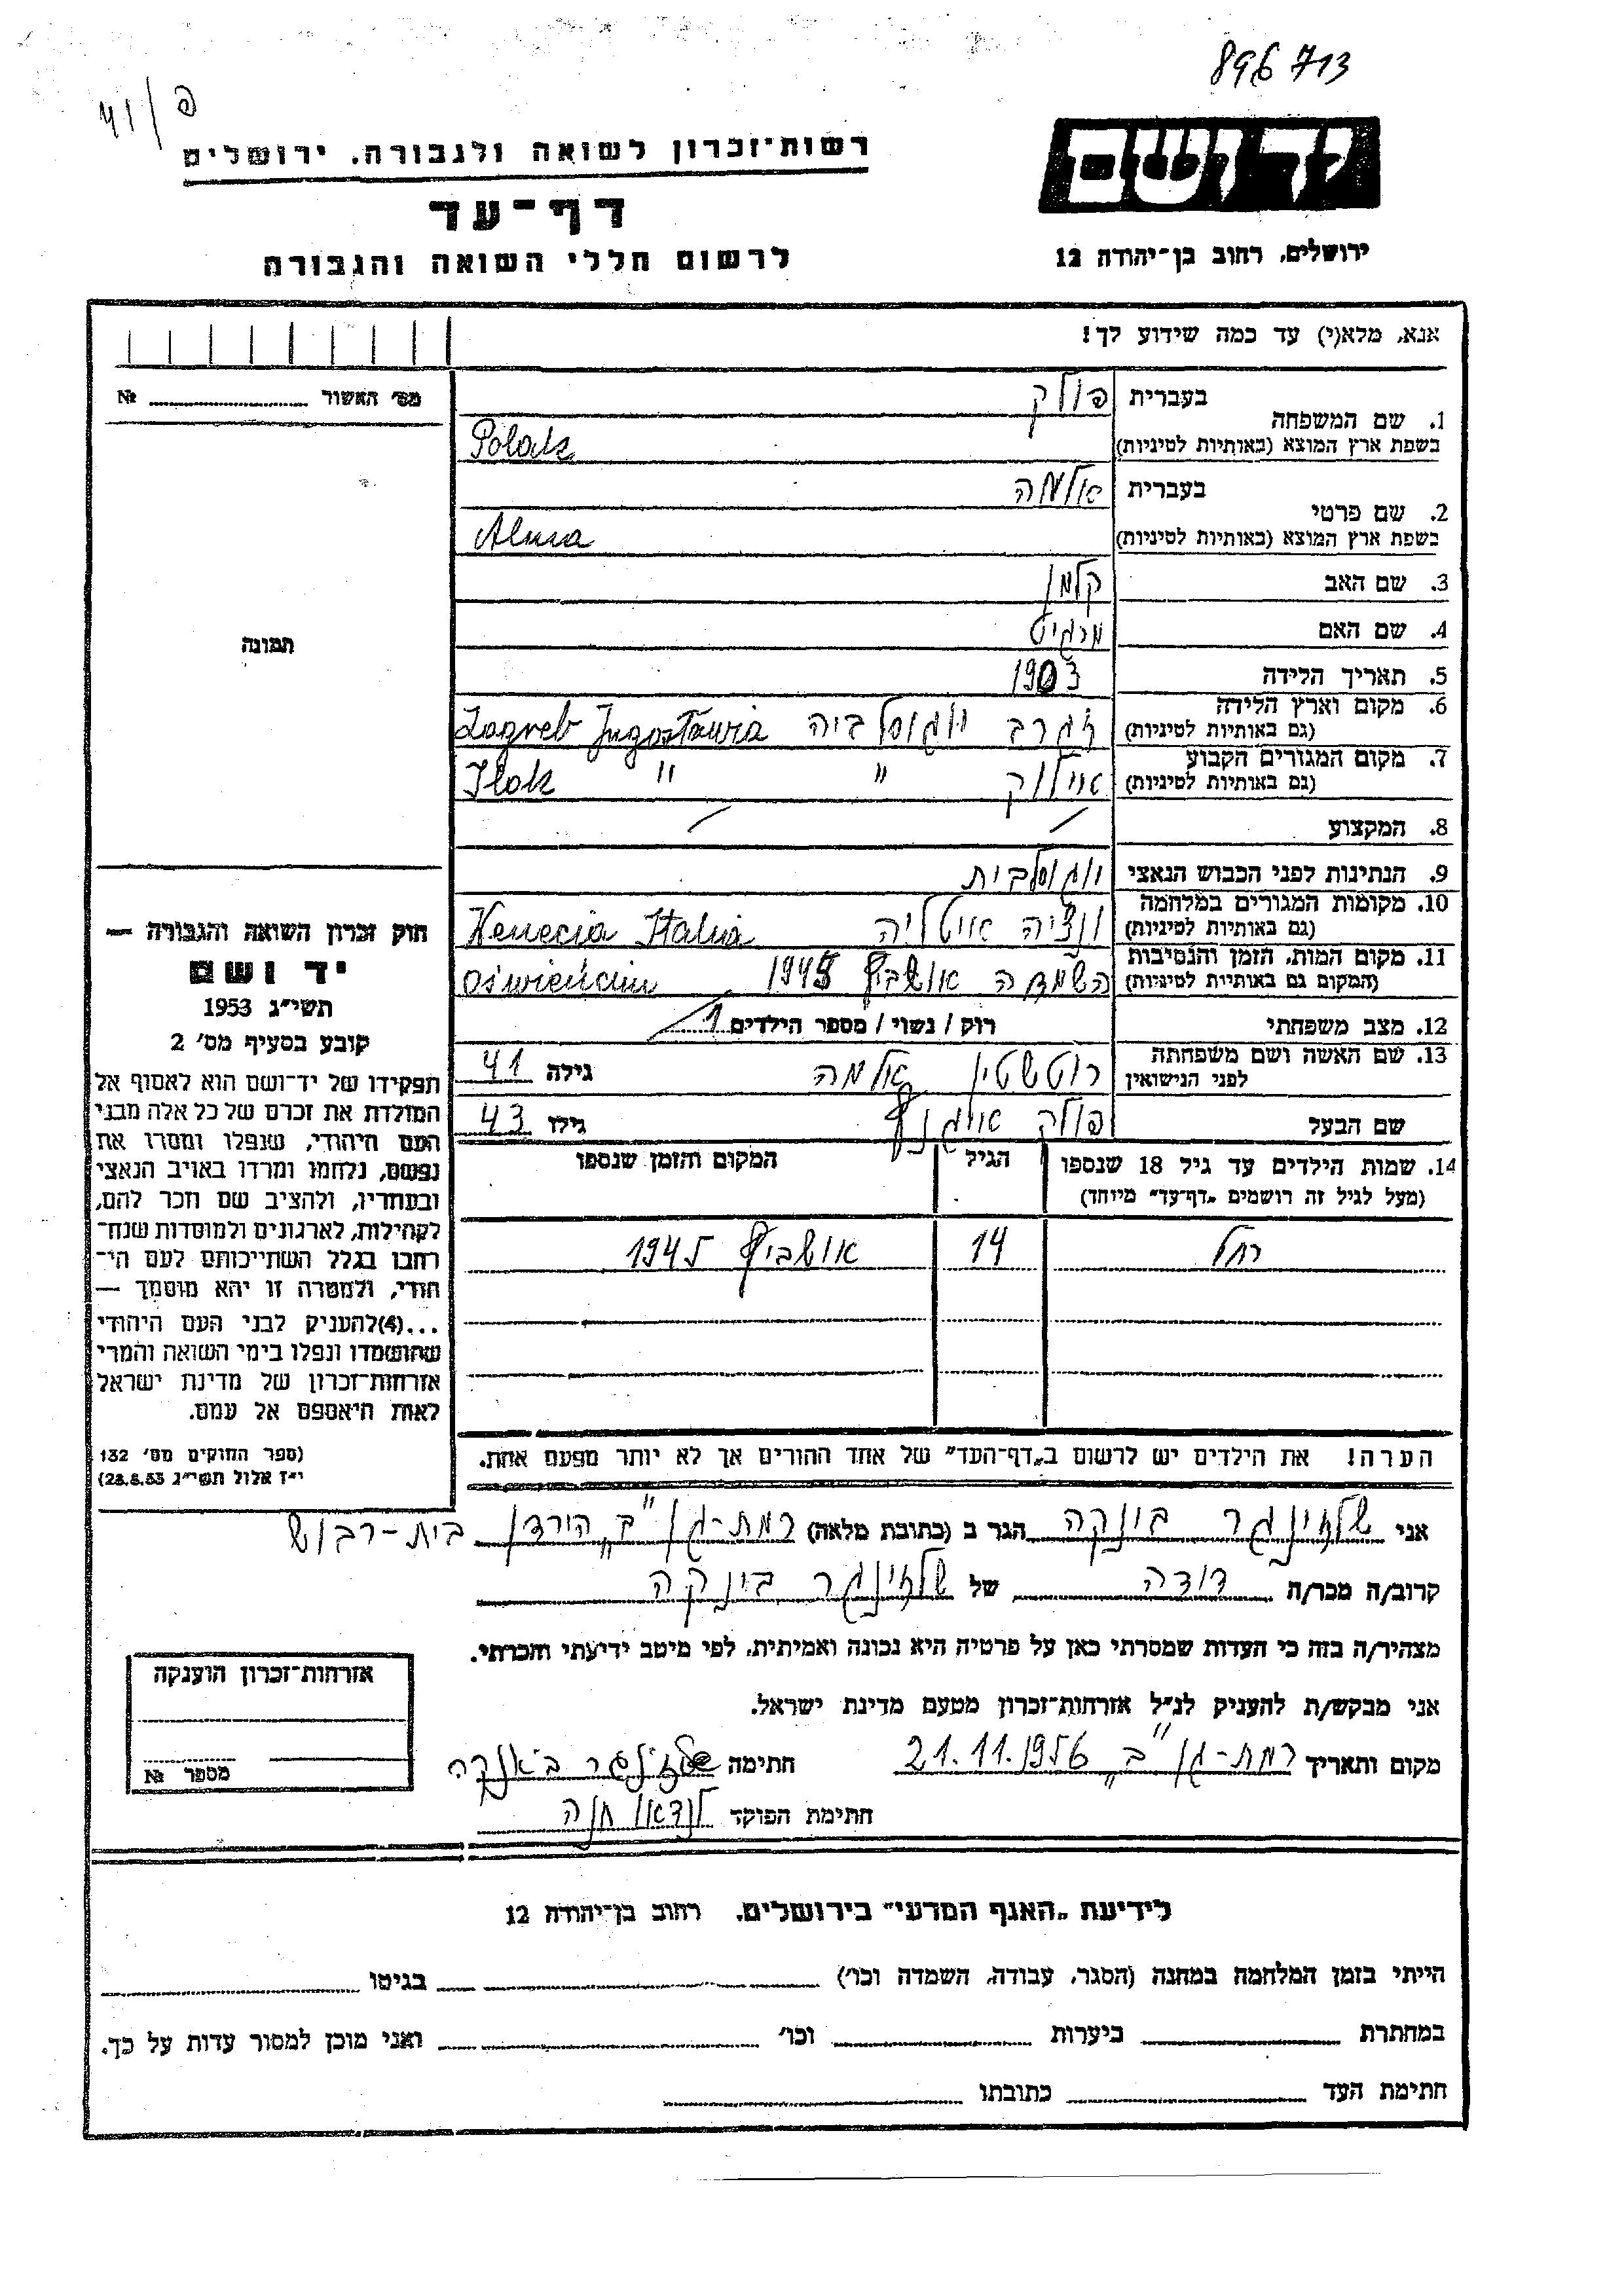 896713
פ/41
יד ושם
רשות־זכרון לשואה ולגבורה, ירושלים
דף־עד
לרשום חללי השואה והגבורה
ירושלים, רחוב בן־יהודה 12
אנא, מלא(י) עד כמה שידוע לך!
מס׳ האשור № 
תמונה
1. שם המשפחה בעברית פולק
בשפת ארץ המוצא (באותיות לטיניות) Polak
2. שם פרטי בעברית אלמה
בשפת ארץ המוצא (באותיות לטיניות) Alma
3. שם האב קלמן
4. שם האם מרגיט
5. תאריך הלידה 1903
6. מקום וארץ הלידה (גם באותיות לטיניות) זגרב יוגוסלביה Zagreb Jugosławia
7. מקום המגורים הקבוע (גם באותיות לטיניות) אילוק " Ilok "
8. המקצוע /
9. הנתינות לפני הכבוש הנאצי יוגוסלבית
10. מקומות המגורים במלחמה (גם באותיות לטיניות) ונציה איטליה Venecia Italia
11. מקום המות, הזמן והנסיבות (המקום גם באותיות לטיניות) השמדה אושביץ 1945 Oświęncim
12. מצב משפחתי רוק / נשוי / מספר הילדים 1
13. שם האשה ושם משפחתה לפני הנישואין רוטשטין אלמה גילה 41
שם הבעל פולק אויגן גילו 43
14. שמות הילדים עד גיל 18 שנספו הגיל המקום והזמן שנספו
(מעל לגיל זה רושמים „דף־עד" מיוחד)
רחל 14 אושביץ 1945
הערה! את הילדים יש לרשום ב„דף־העד" של אחד ההורים אך לא יותר מפעם אחת.
חוק זכרון השואה והגבורה —
יד ושם
תשי״ג 1953
קובע בסעיף מס׳ 2
תפקידו של יד־ושם הוא לאסוף אל
המולדת את זכרם של כל אלה מבני
העם היהודי, שנפלו ומסרו את
נפשם, נלחמו ומרדו באויב הנאצי
ובעוזריו, ולהציב שם וזכר להם,
לקהילות, לארגונים ולמוסדות שנח־
רבו בגלל השתייכותם לעם הי־
הודי, ולמטרה זו יהא מוסמך —
...(4)להעניק לבני העם היהודי
שהושמדו ונפלו בימי השואה והמרי
אזרחות־זכרון של מדינת ישראל
לאות היאספם אל עמם.
(ספר החוקים מס׳ 132
י״ז אלול תשי״ג 28.8.53)
אני שלזינגר בינקה הגר ב (כתובת מלאה) רמת-גן "ב" הירדן בית-
קרוב/ה מכר/ה דודה של שלזינגר בינקה
מצהיר/ה בזה כי העדות שמסרתי כאן על פרטיה היא נכונה ואמיתית, לפי מיטב ידיעתי והכרתי.
אני מבקש/ת להעניק לנ״ל אזרחות־זכרון מטעם מדינת ישראל.
מקום ותאריך רמת-גן "ב" 21.11.1956 חתימה שלזינגר
חתימת הפוקד לנדאו חנה
אזרחות־זכרון הוענקה
מספר №
לידיעת „האגף המדעי" בירושלים, רחוב בן־יהודה 12
הייתי בזמן המלחמה במחנה (הסגר, עבודה, השמדה וכו׳) בגיטו
במחתרת ביערות וכו׳ ואני מוכן למסור עדות על כך.
חתימת העד כתובתו